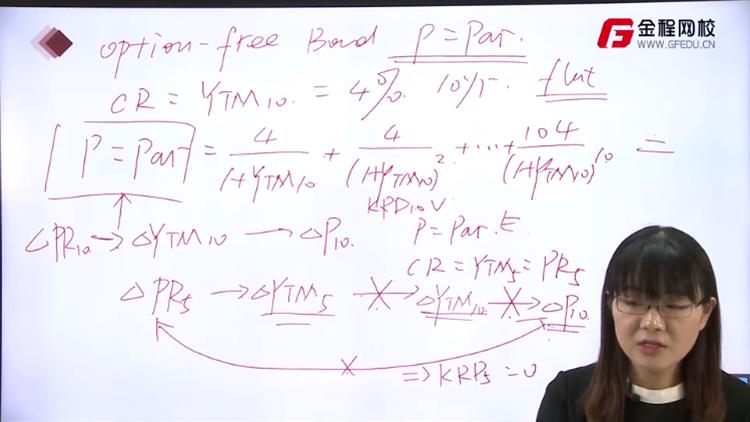 金程网校
WWW.GFEDU.CN
option-free Bond P=Par.
CR = YTM10. = 4% 10yr. flat
P=Par = 4/(1+YTM10) + 4/(1+YTM10)^2 + ... + 104/(1+YTM10)^10 =
KRD10 ∨
△PR10 → △YTM10 → △P10. P=Par.
CR=YTM5=PR5
△PR5 → △YTM5 ✗→ △YTM10 ✗→ △P10
✗ ⇒ KRD5 = 0